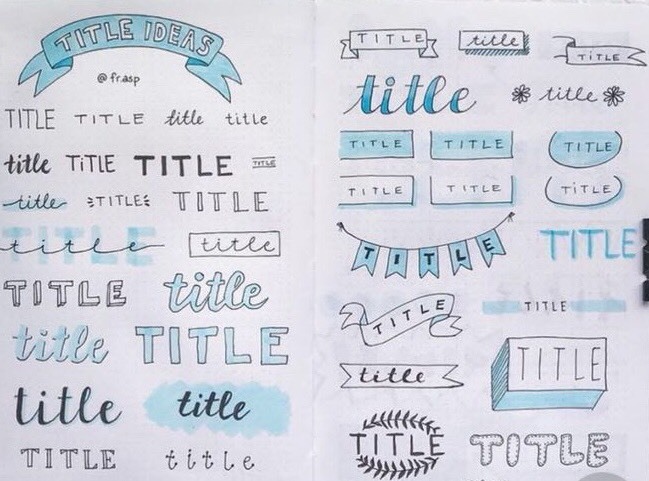 TITLE IDEAS
@fr.asp
TITLE TITLE title title
title TiTLE TITLE TITLE
title TITLE TITLE
title title
TITLE title
title TITLE
title title
TITLE title
TITLE title TITLE
title title
TITLE TITLE TITLE
TITLE TITLE TiTLE
TITLE TITLE
TITLE TITLE
title TITLE
TITLE TITLE